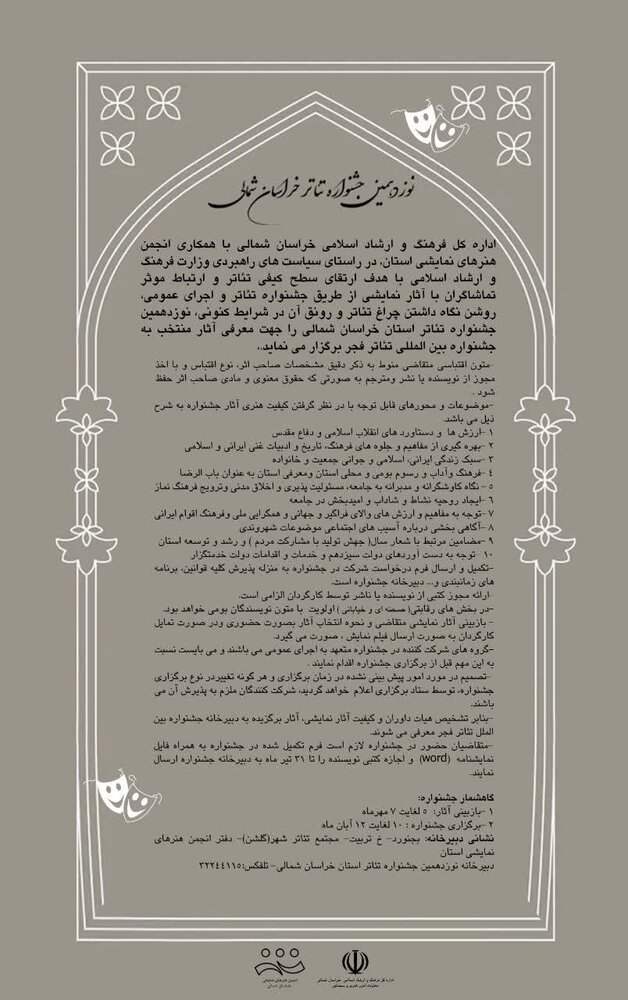 نوزدهمین جشنواره تئاتر خراسان شمالی
اداره کل فرهنگ و ارشاد اسلامی خراسان شمالی با همکاری انجمن
هنرهای نمایشی استان، در راستای سیاست های راهبردی وزارت فرهنگ
و ارشاد اسلامی با هدف ارتقای سطح کیفی تئاتر و ارتباط موثر
تماشاگران با آثار نمایشی از طریق جشنواره تئاتر و اجرای عمومی،
روشن نگاه داشتن چراغ تئاتر و رونق آن در شرایط کنونی، نوزدهمین
جشنواره تئاتر استان خراسان شمالی را جهت معرفی آثار منتخب به
جشنواره بین المللی تئاتر فجر برگزار می نماید.،
-متون اقتباسی متقاضی منوط به ذکر دقیق مشخصات صاحب اثر، نوع اقتباس و با اخذ
مجوز از نویسنده یا نشر ومترجم به صورتی که حقوق معنوی و مادی صاحب اثر حفظ
شود .
-موضوعات و محورهای قابل توجه با در نظر گرفتن کیفیت هنری آثار جشنواره به شرح
ذیل می باشد.
۱-ارزش ها و دستاورد های انقلاب اسلامی و دفاع مقدس
۲-بهره گیری از مفاهیم و جلوه های فرهنگ، تاریخ و ادبیات غنی ایرانی و اسلامی
۳-سبک زندگی ایرانی، اسلامی و جوانی جمعیت و خانواده
۴-فرهنگ وآداب و رسوم بومی و محلی استان ومعرفی استان به عنوان باب الرضا
۵- نگاه کاوشگرانه و مدبرانه به جامعه، مسئولیت پذیری و اخلاق مدنی وترویج فرهنگ نماز
۶-ایجاد روحیه نشاط و شاداب و امیدبخش در جامعه
۷-توجه به مفاهیم و ارزش های والای فراگیر و جهانی و همگرایی ملی وفرهنگ اقوام ایرانی
۸-آگاهی بخشی درباره آسیب های اجتماعی موضوعات شهروندی
۹-مضامین مرتبط با شعار سال( جهش تولید با مشارکت مردم ) و رشد و توسعه استان
۱۰- توجه به دست آوردهای دولت سیزدهم و خدمات و اقدامات دولت خدمتگزار
-تکمیل و ارسال فرم درخواست شرکت در جشنواره به منزله پذیرش کلیه قوانین، برنامه
های زمانبندی و... دبیرخانه جشنواره است.
-ارائه مجوز کتبی از نویسنده یا ناشر توسط کارگردان الزامی است.
-در بخش های رقابتی( صحنه ای و خیابانی ) اولویت با متون نویسندگان بومی خواهد بود.
- بازبینی آثار نمایشی متقاضی و نحوه انتخاب آثار بصورت حضوری ودر صورت تمایل
کارگردان به صورت ارسال فیلم نمایش ، صورت می گیرد.
-گروه های شرکت کننده در جشنواره متعهد به اجرای عمومی می باشند و می بایست نسبت
به این مهم قبل از برگزاری جشنواره اقدام نمایند .
-تصمیم در مورد امور پیش بینی نشده در زمان برگزاری و هر گونه تغییردر نوع برگزاری
جشنواره، توسط ستاد برگزاری اعلام خواهد گردید، شرکت کنندگان ملزم به پذیرش آن می
باشند.
-بنابر تشخیص هیات داوران و کیفیت آثار نمایشی، آثار برگزیده به دبیرخانه جشنواره بین
الملل تئاتر فجر معرفی می شوند.
-متقاضیان حضور در جشنواره لازم است فرم تکمیل شده در جشنواره به همراه فایل
نمایشنامه (word) و اجازه کتبی نویسنده را تا ۳۱ تیر ماه به دبیرخانه جشنواره ارسال
نمایند.
گاهشمار جشنواره:
۱-بازبینی آثار: ۵ لغایت ۷ مهرماه
۲-برگزاری جشنواره : ۱۰ لغایت ۱۲ آبان ماه
نشانی دبیرخانه: بجنورد- خ تربیت- مجتمع تئاتر شهر(گلشن)- دفتر انجمن هنرهای
نمایشی استان
دبیرخانه نوزدهمین جشنواره تئاتر استان خراسان شمالی- تلفکس:۳۲۲۴۴۱۱۵
انجمن هنرهای نمایشی
خراسان شمالی
اداره کل فرهنگ و ارشاد اسلامی خراسان شمالی
معاونت امور هنری و سینمایی